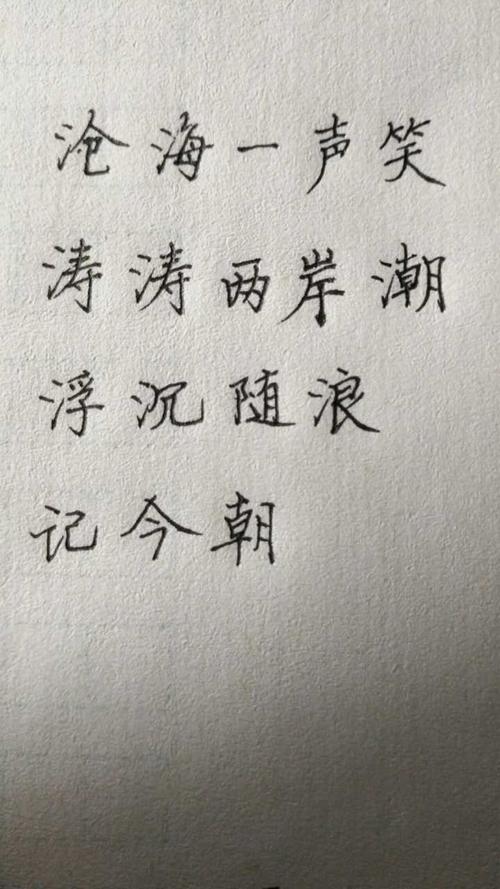 沧海一声笑
涛涛两岸潮
浮沉随浪
记今朝